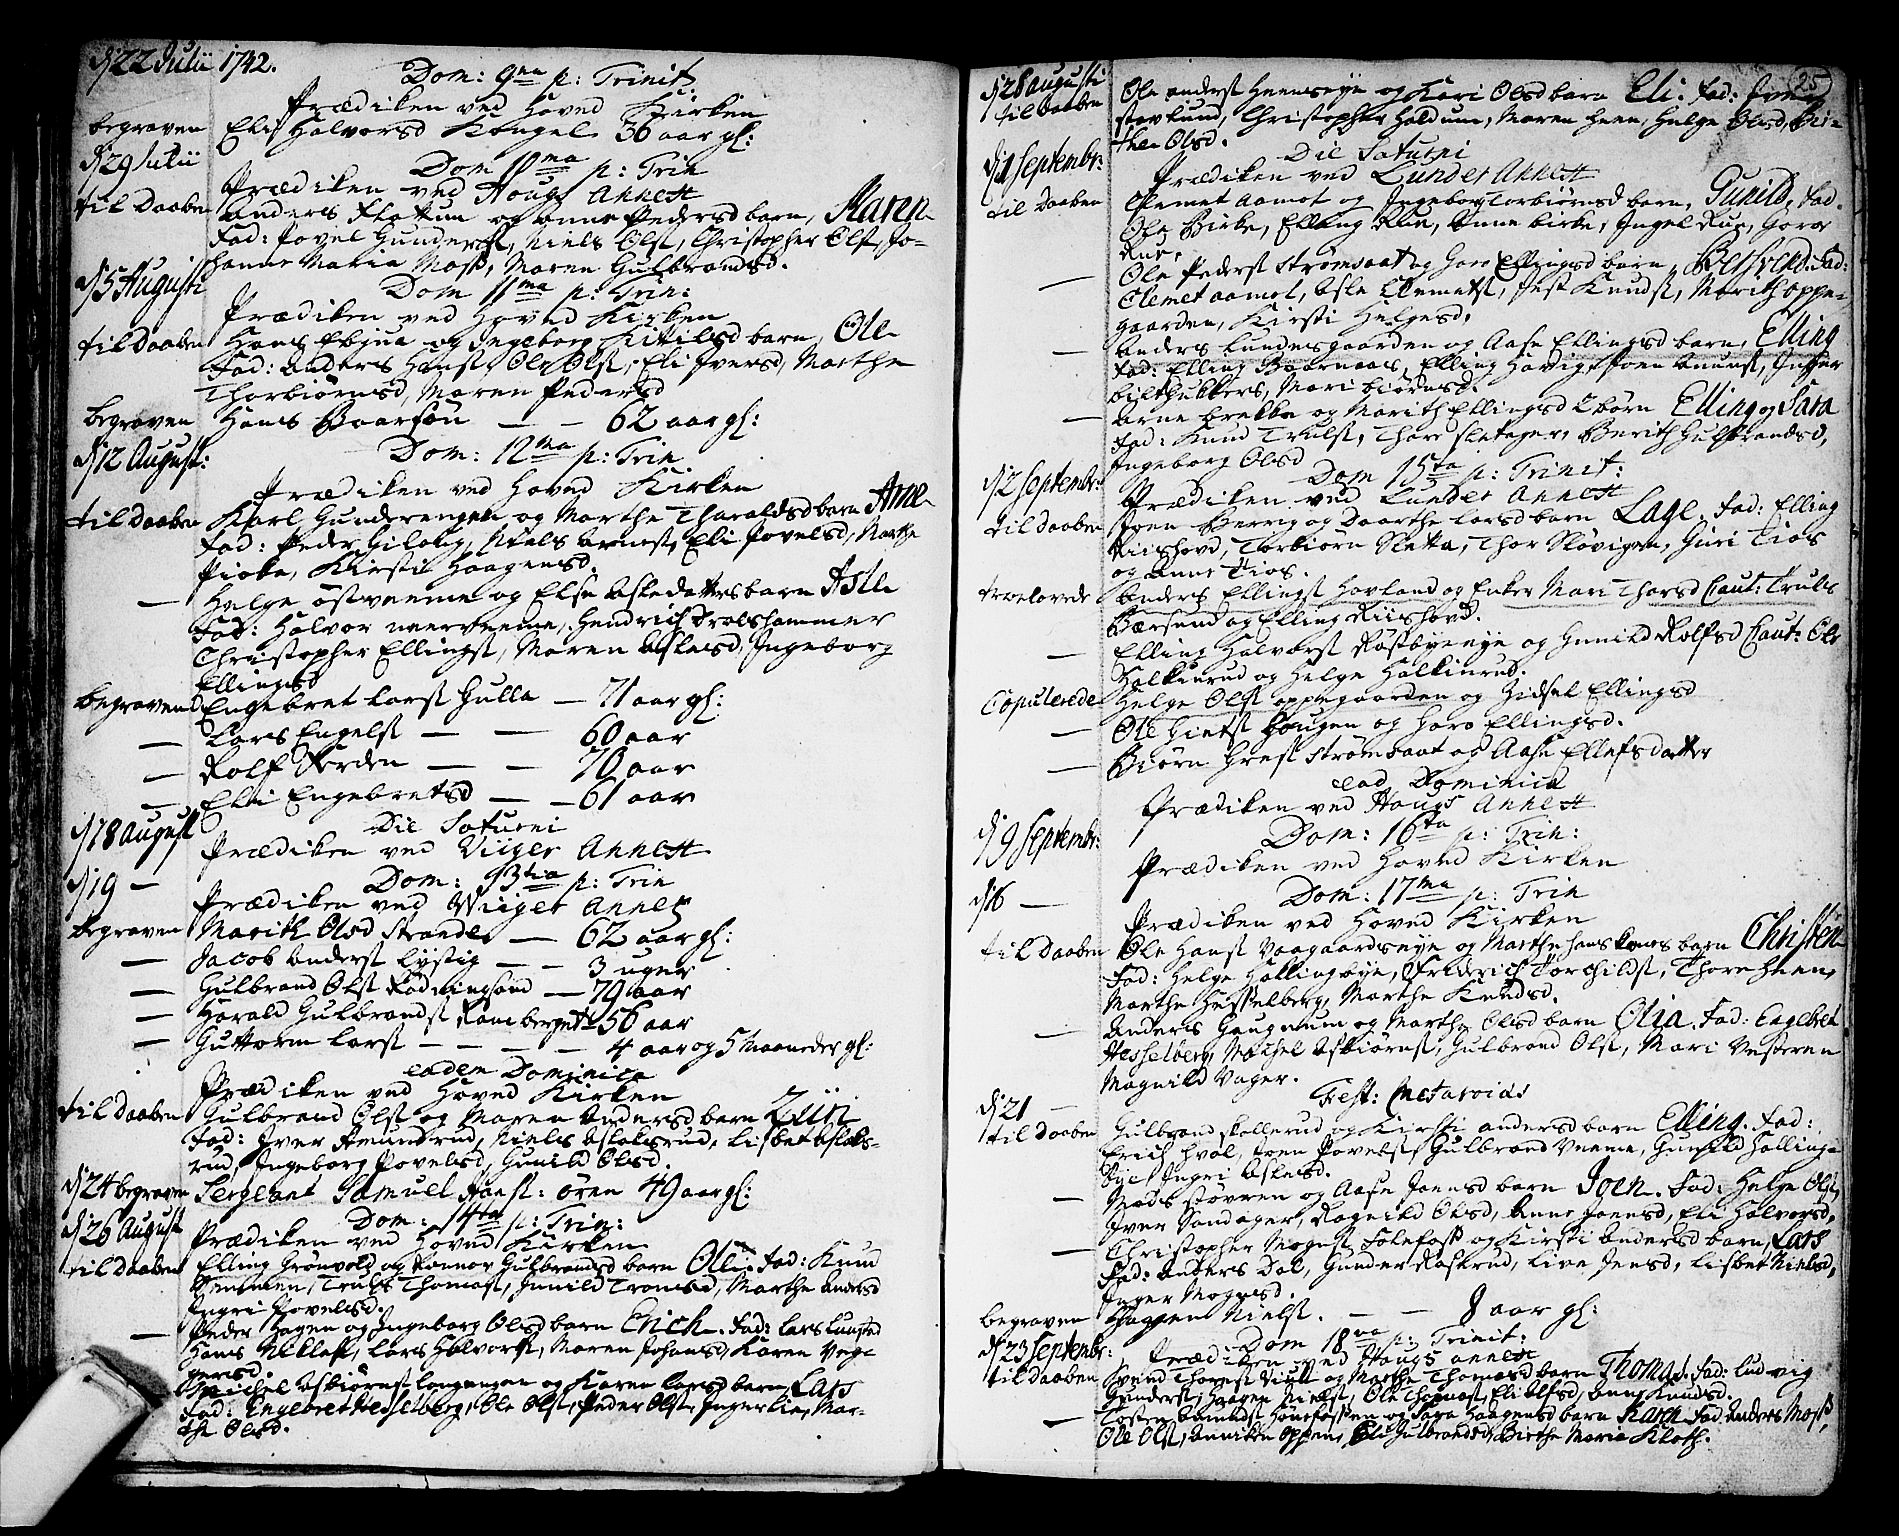 d 22 Julii 1742.
Dom: 9na p: Trinit.
Prædiken ved Hoved Kirken
begraven Eli Halvorsd Kongel 36 aar gl:
d 29 Julii
Dom 10ma p: Trin
Prædiken ved Hougs Annext
til Daaben Anders Flattum og Anne Pedersd barn, Karen
Fad: Povel Gunderst, Niels Olst, Christopher Olst, Jo-
hanne Maria Moss, Maren Gulbrandsd.
d 5 Augusti
Dom 11ma p: Trin:
Prædiken ved Hoved Kirken
til Daaben Hans og Ingeborg Kittilsd barn, Ole
Fad: Anders Hanst, Ole Olst, Eli Iversd, Marthe
Thorbiørnsd, Maren Pedersd
begraven Hans Baarsøn — — 62 aar gl:
d 12 August:
Dom: 12ma p: Trin
Prædiken ved Hoved Kirken
til Daaben Karl Gunderengen og Marthe Tharaldsd barn Arne
Fad: Peder Gilong, Niels Arnest, Eli Povelsd, Marthe
Kirsti Haagensd.
— Helge østveeme og Else Askedatters barn Asle
Fad: Halvor Hendrich
Christopher Ellingst, Maren Aslesd, Ingeborg
Ellingsd
begraven Engebret Larst Hulla — 71 aar gl:
— Lars Engelst — — 60 aar
— Rolf Skerden — — 70 aar
— Eli Engebretsd — — 61 aar
d 18 August
Die Saturni
Prædiken ved Viiger Annext
d 19 —
Dom: 13tia p: Trin
Prædiken ved Wiiger Annex
begraven Marith Olsd Strande — 62 aar gl:
— Jacob Anderst Lystig — — 3 uger
— Gulbrand Olst — 79 aar
— Harald Gulbrandst 56 aar
— Guttorm Larst — — — — 4 aar og 5 Maaneder gl:
eadem Dominica
Prædiken ved Hoved Kirken
til Daaben Gulbrand Olst og Maren Andersd barn Ziin
Fad: Iver Amundrud, Niels Aslaksrud, Lisbet Aslaks-
rud, Ingeborg Povelsd, Gunild Olsd.
d 24 begraven Sergeant Samuel Hanst: ören 49 aar gl:
d 26 August
Dom: 14ta p: Trin:
Prædiken ved Hoved Kirken
til Daaben Elling Grönvold og Ronnor Gulbrandsd barn Oli. Fad: Knud
Truls Thomast, Gunild Tromsd, Marthe Andersd
Ingri Povelsd.
— Peder Hagen og Ingeborg Olsd barn Erich. Fad: Lars
Hans Niklast, Lars Halvorst, Maren Johansd, Karen Vege-
gersd.
Michel Asbiörnst og Karen Larsd barn Lars
Fad: Engebret Hesselberg, Ole Olst, Peder Olst, Inger Lie, Mar-
the Olsd.
25
d 28 Augusti
til Daaben Ole Anderst Heensøye og Kari Olsd barn Eli: Fad: Iver
Christopher Haldum, Maren Heen, Helge Olsd, Bir-
the Olsd.
d 1 Septembr:
Die Saturni
Prædiken ved Lunder Annext
til Daaben Clemet Aamot og Ingeborg Torbiørnsd barn, Gunild, Fad.
Ole Birke, Elling Rue, Anne Birke, Ingel Rue, Goro
Rue.
— Ole Pederst Strömsaat og Goro Ellingsd barn, Fad:
Clemet Aamot, Asle Clemetst, Knudst, Marith Oppe-
gaarden, Kirsti Helgesd.
— Anders Lundesgaarden og Aase Ellingsd barn, Elling
Fad: Elling Elling
Mari Biørnsd.
— Arne Brekke og Marith Ellingsd 2 börn Elling og Sara
Fad: Knud Trulst, Thore Sletager, Berith Gulbrandsd,
Ingeborg Olsd
d 2 Septembr:
Dom 15ta p: Trinit:
Prædiken ved Lunder Annext
til Daaben Joen Berrig og Daarthe Larsd barn Lage. Fad: Elling
Riishovd, Torbiörn Sletta, Thor Slövigen, Guri Tios
og Anne Tios.
Trolovede Anders Ellingst Hovland og Enke Mari Thorsd Caut: Truls
Børsund og Elling Riishovd.
— Elling Halvorst og Gunild Rolfsd Caut: Ole
Halkinrud og Helge Halkinrud.
Copulerede Helge Olst oppegaarden og Zidsel Ellingsd
— Ole Hougen og Goro Ellingsd.
— Biörn Strömsaat og Aase Ellefsdatter
ead Dominica
Prædiken ved Hougs Annext
d 9 Septembr:
Dom: 16ta p: Trin:
Prædiken ved Hoved Kirken
d 16 —
Dom: 17ma p: Trin
Prædiken ved Hoved Kirken
til Daaben Ole Hanst Vaagaardsøye og Marthe hans Kones barn Christen
Fad: Helge Hallingbye, Friderich Torchildst, Thore Heen,
Marthe Hesselberg, Marthe Knudsd.
— Anders Haugnum og Marthe Olsd barn Olia. Fad: Engebret
Hesselberg, Michel Asbiørnst, Gulbrand Olst, Mari Vesteren
Magnild Vager.
d 21 —
Fest:
til Daaben Gulbrand Skollerud og Kirsti Andersd barn Elling. Fad:
Erich Hval, Joen Povelst, Gulbrand Veeme, Gunild Halling-
bye, Ingri Aslesd.
— Mads Stovren og Aase Joensd barn Joen. Fad: Helge Olst,
Iver Sandager, Ragnild Olsd, Anne Joensd, Eli Halvorsd.
— Christopher Mognst Folefoss og Kirsti Andersd barn, Lars
Fad: Anders Dal, Gunder Roskrud, Live Jensd, Lisbet Nielsd,
Inger Mognsd.
begraven Haagen Nielst. — — 1 aar gl:
d 23 Septembr:
Dom 18va p: Trinit:
Prædiken ved Hougs Annext
til Daaben Svend Thorest og Marthe Thomasd barn Thomas. Fad: Ludvig
Gunderst, Haagen Nielst, Ole Thomast, Eli Olsd, Anne Knudsd.
— Tosten Hönefossen og Sara Haagensd barn Karen Fad: Anders Moss,
Ole Olst, Anniken Oppen, Eli Gulbrandsd, Birthe Maria Kloth.